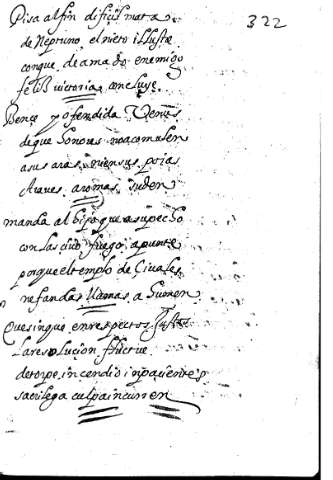 322
Pisa al fin dificil mata
de Neptuno el nieto illustre
conque de amado enemigo
feliz victoria concluye.
Vence y ofendida Venus
de que honores no acomulen
a sus aras, ni en sus
suaves aromas suden
manda al hijo que a su pecho
con lascivo fuego apunte
porque el templo de Civeles
nefandas llamas ahumen
Que sin que en respectos justos
la resolucion fluctue
de torpe incendio inpacientes
sacrilega culpa incurren